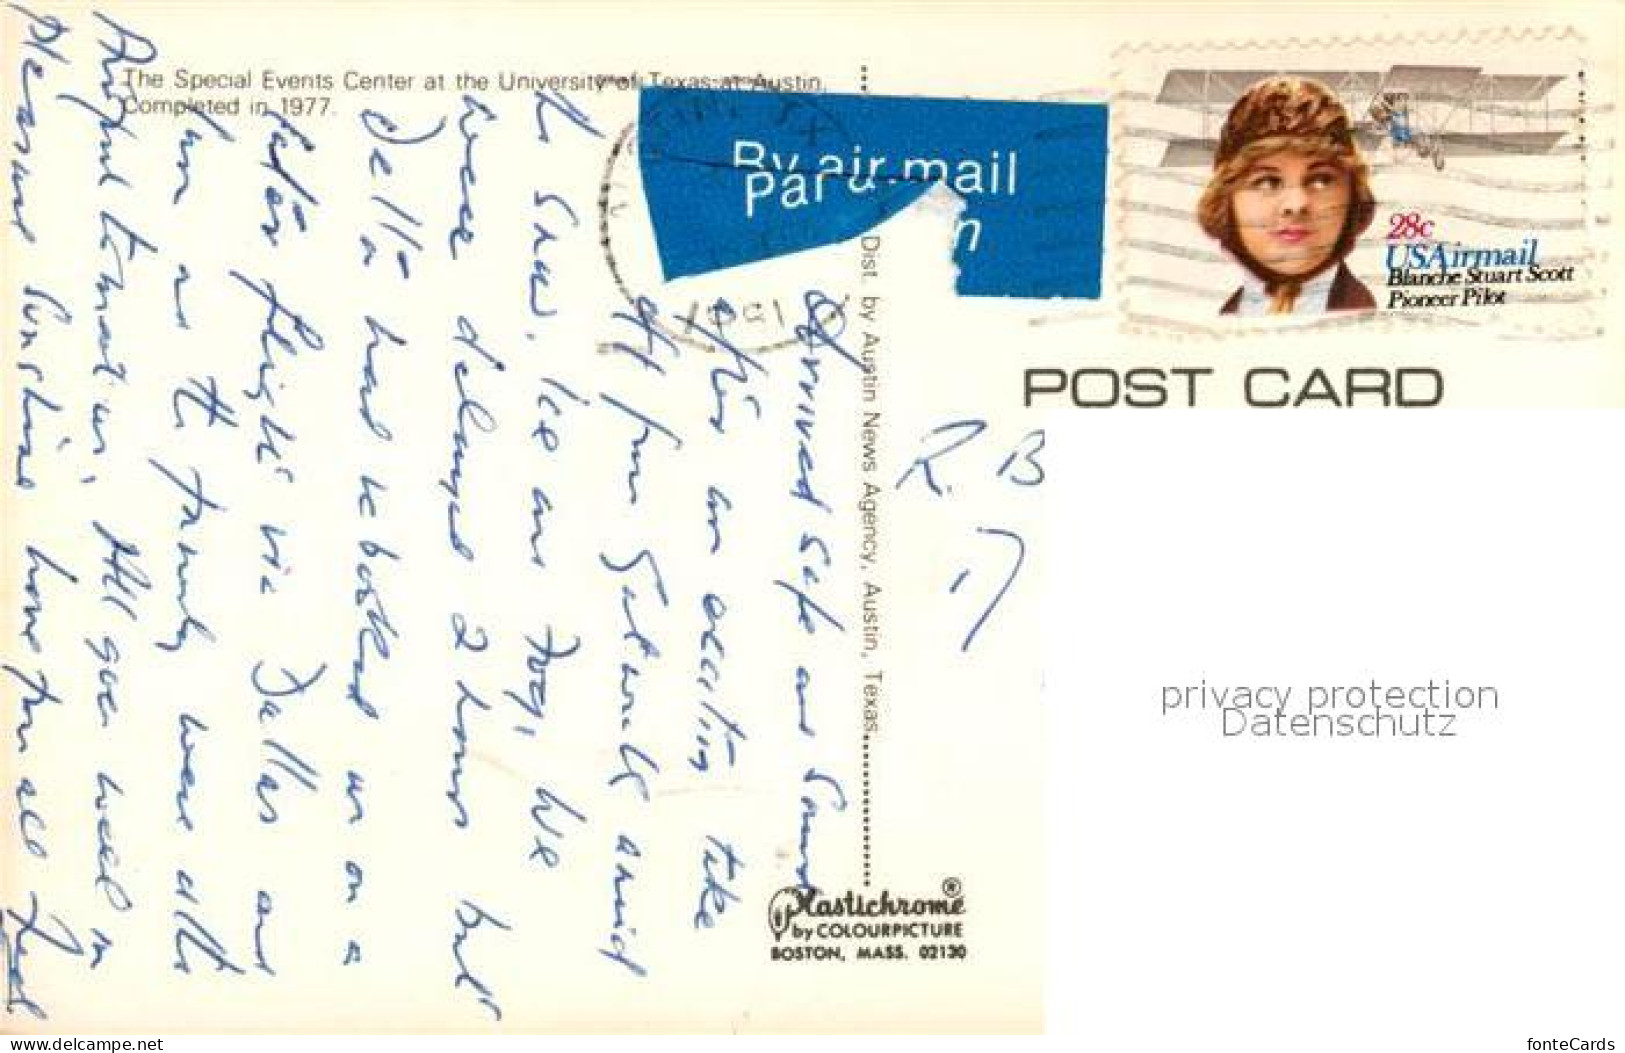 The Special Events Center at the University of Texas at Austin.
Completed in 1977.
By air mail
Par
n
28c
USAirmail
Blanche Stuart Scott
Pioneer Pilot
POST CARD
Dist. by Austin News Agency, Austin, Texas
Arrived safe and Sound
after an exciting take
off from Gatwick amid
Snow, Ice and Fog, We
were delayed 2 hours but
Delta had re booked us on a
later flight via Dallas and
on the family were at the
Airport to mat us. All goes well in
pleasure Sunshine love from all
R. B
Plastichrome®
by COLOURPICTURE
BOSTON, MASS. 02130
privacy protection
Datenschutz
www.delcampe.net
fonteCards